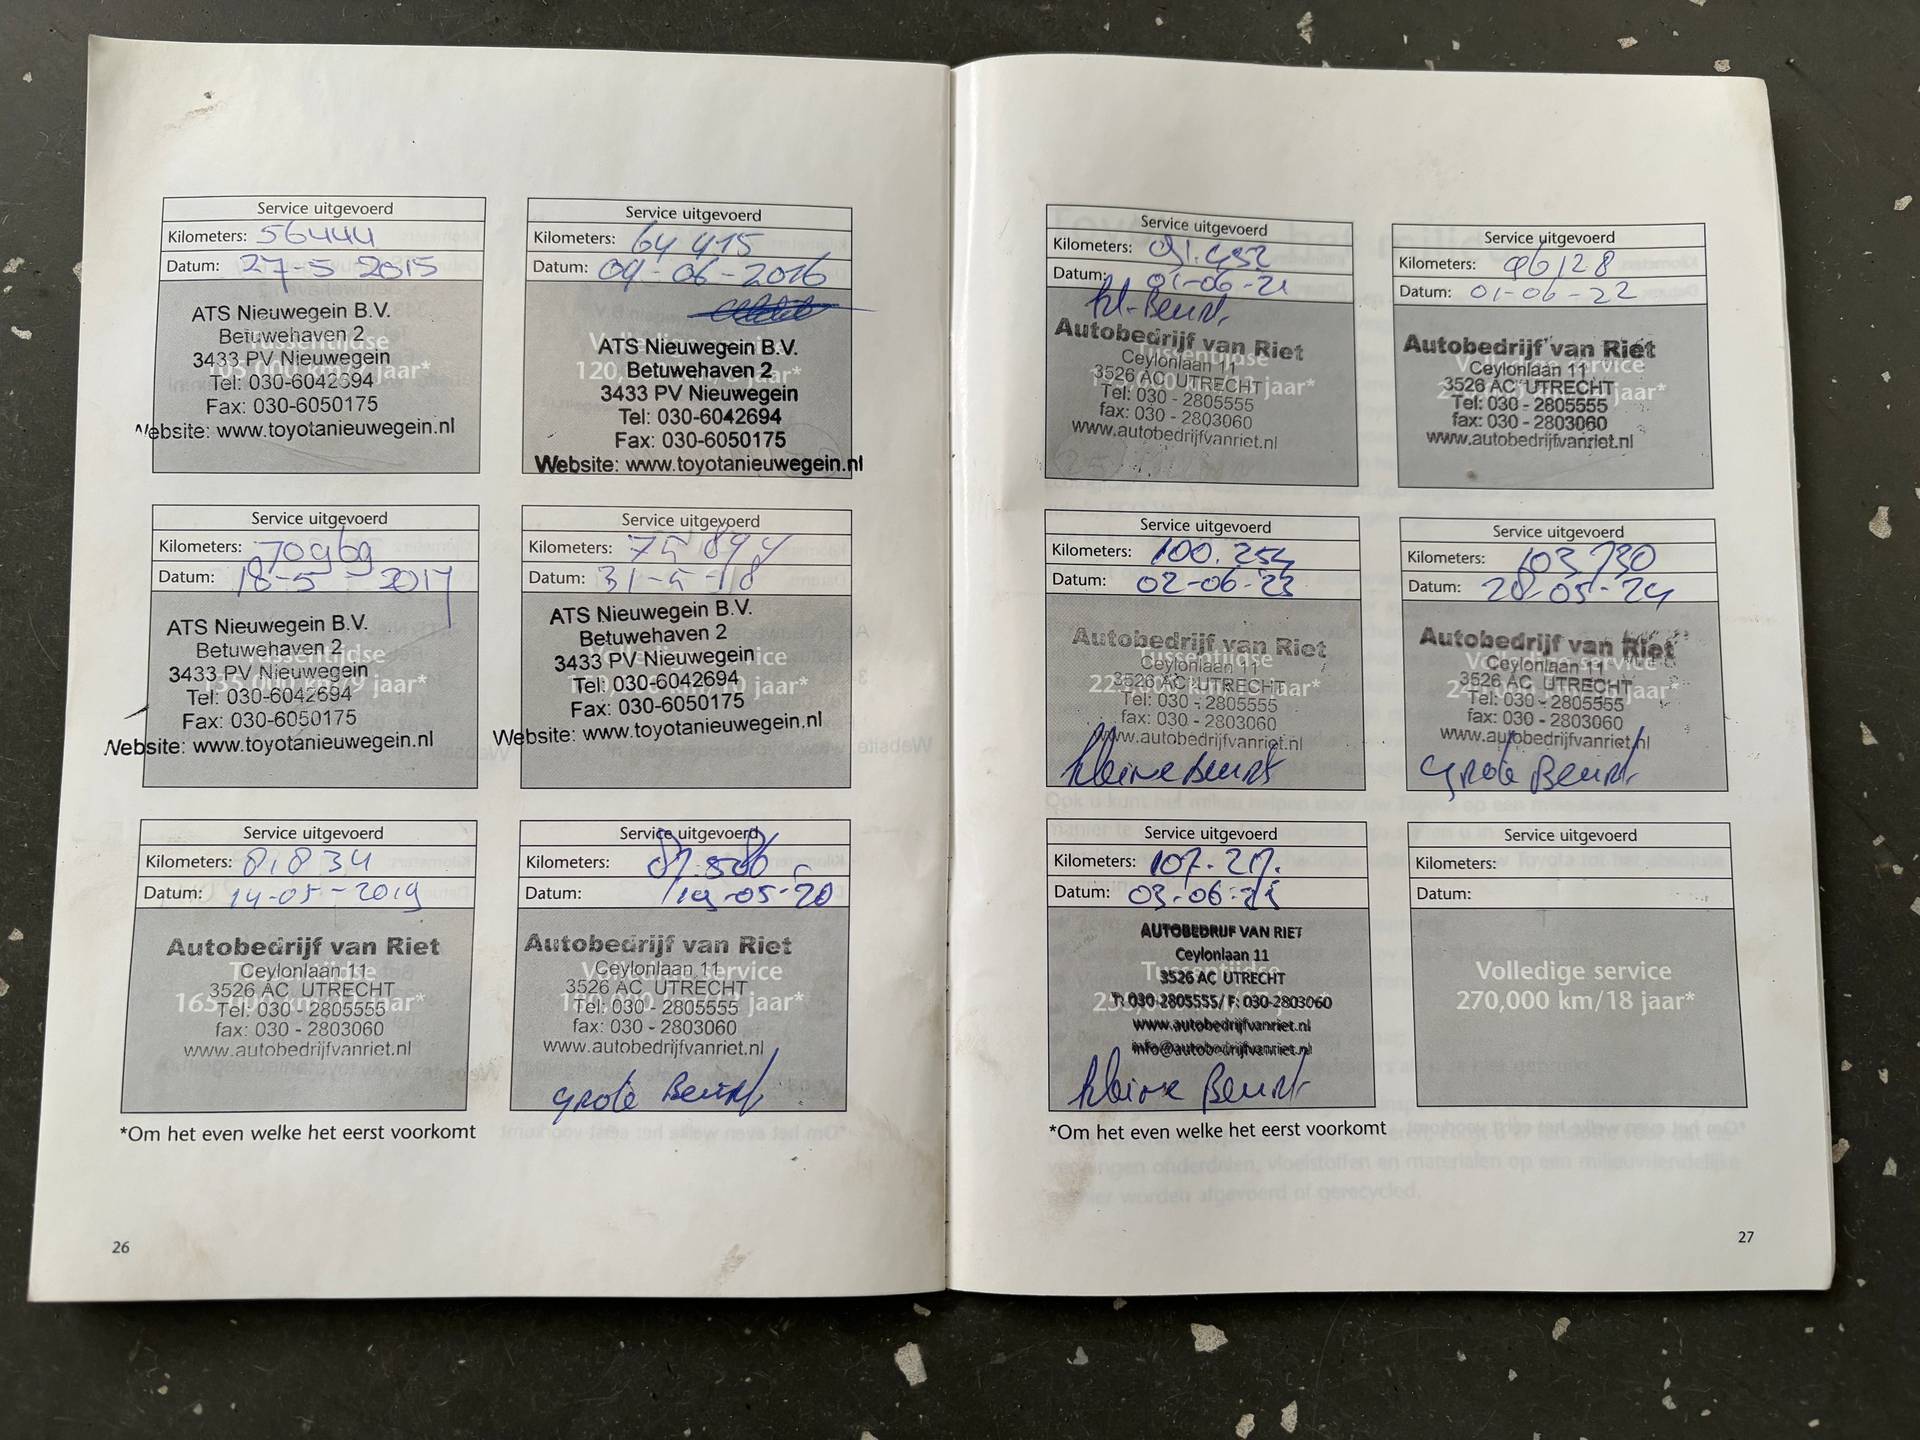 Service uitgevoerd
Kilometers: 56444
Datum: 27-5 2015
ATS Nieuwegein B.V.
Betuwehaven 2
3433 PV Nieuwegein
Tel: 030-6042694
Fax: 030-6050175
Website: www.toyotanieuwegein.nl
Tussentijdse
105,000 km/7 jaar*
Service uitgevoerd
Kilometers: 64 415
Datum: 09-06-2016
ATS Nieuwegein B.V.
Betuwehaven 2
3433 PV Nieuwegein
Tel: 030-6042694
Fax: 030-6050175
Website: www.toyotanieuwegein.nl
Volledige service
120,000 km/8 jaar*
Service uitgevoerd
Kilometers: 70969
Datum: 18-5-2017
ATS Nieuwegein B.V.
Betuwehaven 2
3433 PV Nieuwegein
Tel: 030-6042694
Fax: 030-6050175
Website: www.toyotanieuwegein.nl
Tussentijdse
135,000 km/9 jaar*
Service uitgevoerd
Kilometers:
Datum: 31-5-18
ATS Nieuwegein B.V.
Betuwehaven 2
3433 PV Nieuwegein
Tel: 030-6042694
Fax: 030-6050175
Website: www.toyotanieuwegein.nl
Volledige service
150,000 km/10 jaar*
Service uitgevoerd
Kilometers: 81834
Datum: 14-05-2019
Autobedrijf van Riet
Ceylonlaan 11
3526 AC UTRECHT
Tel: 030 - 2805555
fax: 030 - 2803060
www.autobedrijfvanriet.nl
Tussentijdse
165,000 km/11 jaar*
Service uitgevoerd
Kilometers: 87.586
Datum: 19-05-20
Autobedrijf van Riet
Ceylonlaan 11
3526 AC UTRECHT
Tel: 030 - 2805555
fax: 030 - 2803060
www.autobedrijfvanriet.nl
Volledige service
180,000 km/12 jaar*
grote Beurt
*Om het even welke het eerst voorkomt
26
Service uitgevoerd
Kilometers: 91.452
Datum: 01-06-21
kl. Beurt
Autobedrijf van Riet
Ceylonlaan 11
3526 AC UTRECHT
Tel: 030 - 2805555
fax: 030 - 2803060
www.autobedrijfvanriet.nl
Tussentijdse
jaar*
Service uitgevoerd
Kilometers: 96128
Datum: 01-06-22
Autobedrijf van Riet
Ceylonlaan 11
3526 AC UTRECHT
Tel: 030 - 2805555
fax: 030 - 2803060
www.autobedrijfvanriet.nl
Volledige service
jaar*
Service uitgevoerd
Kilometers: 100.254
Datum: 02-06-23
Autobedrijf van Riet
Ceylonlaan 11
3526 AC UTRECHT
Tel: 030 - 2805555
fax: 030 - 2803060
www.autobedrijfvanriet.nl
Tussentijdse
225,000 km/15 jaar*
kleine Beurt
Service uitgevoerd
Kilometers: 103.730
Datum: 28-05-24
Autobedrijf van Riet
Ceylonlaan 11
3526 AC UTRECHT
Tel: 030 - 2805555
fax: 030 - 2803060
www.autobedrijfvanriet.nl
Volledige service
240,000 km/16 jaar*
grote Beurt
Service uitgevoerd
Kilometers: 107.217.
Datum: 03-06-25
AUTOBEDRIJF VAN RIET
Ceylonlaan 11
3526 AC UTRECHT
T: 030-2805555/ F: 030-2803060
www.autobedrijfvanriet.nl
info@autobedrijfvanriet.nl
Tussentijdse
255,000 km/17 jaar*
kleine Beurt
Service uitgevoerd
Kilometers:
Datum:
Volledige service
270,000 km/18 jaar*
*Om het even welke het eerst voorkomt
27